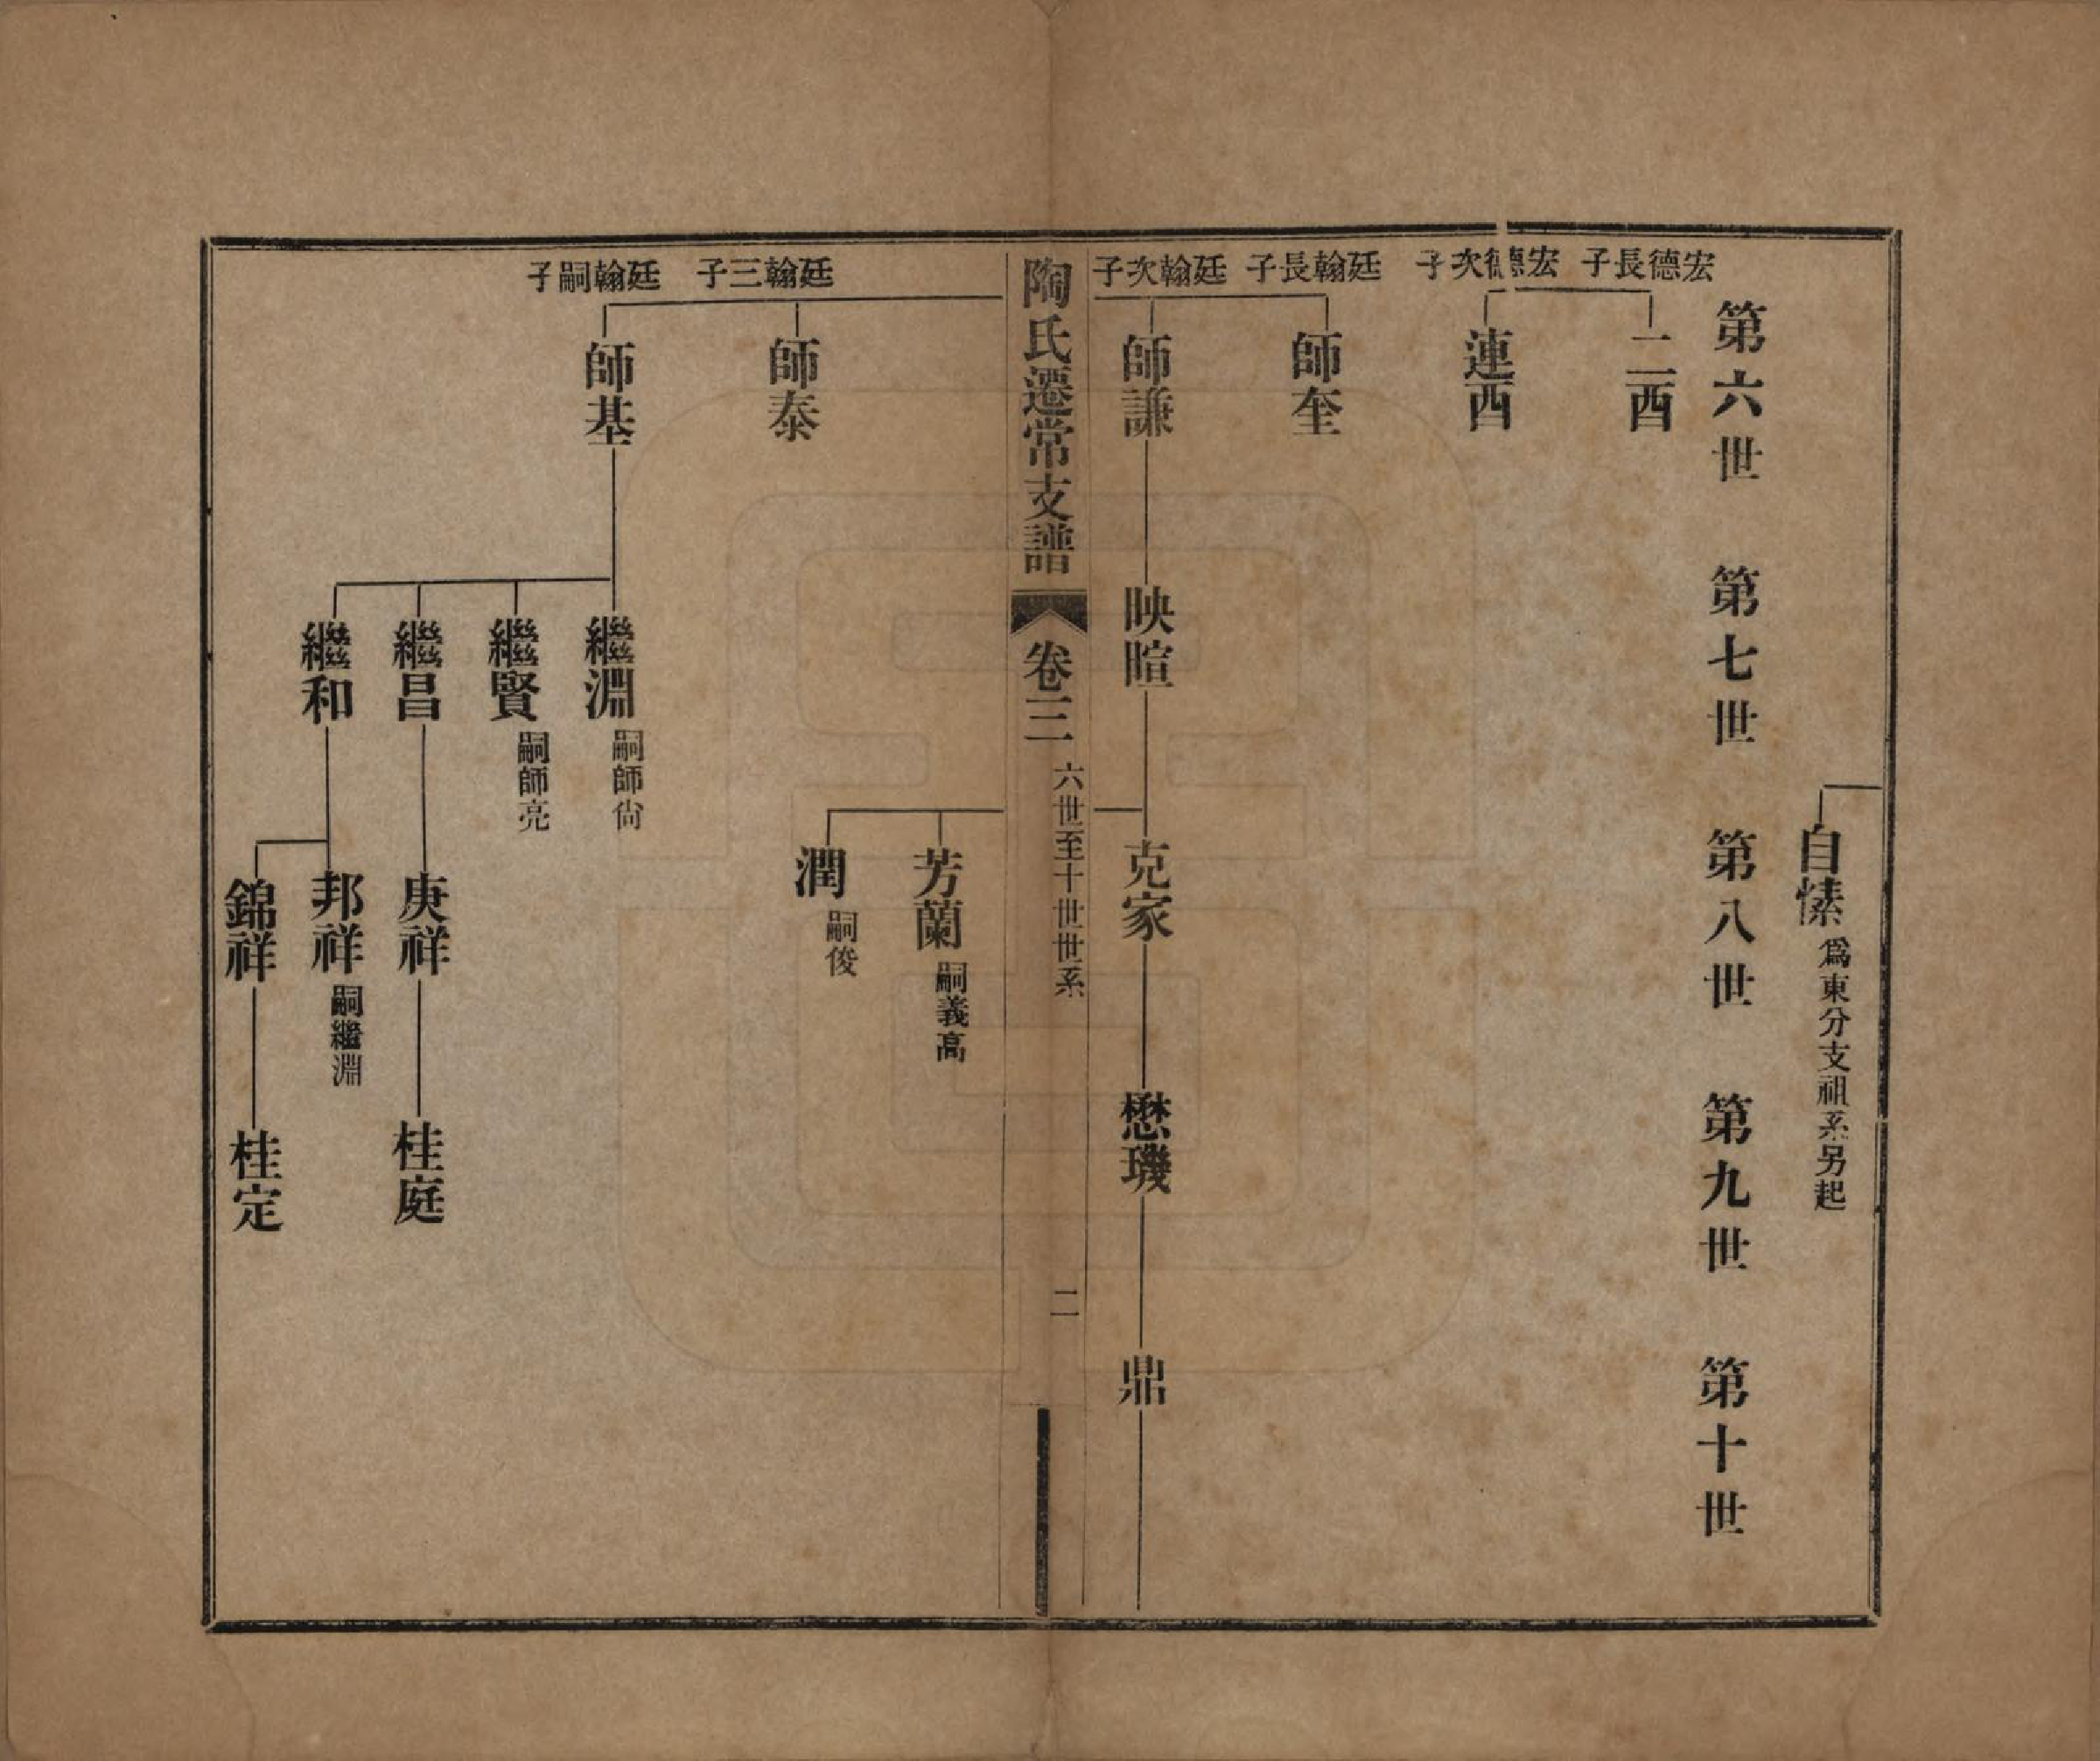 自愫
為東分支祖系另起
第六世 第七世 第八世 第九世 第十世
宏德長子
二酉
宏德次子
連酉
廷翰長子
師奎
廷翰次子
師謙 映暄 克家 懋璣 鼎
陶氏遷常支譜 卷三 六世至十世世系 二
芳蘭 嗣義高
潤 嗣俊
廷翰三子
師泰
廷翰嗣子
師基 繼淵 嗣師尙
繼賢 嗣師亮
繼昌 庚祥 桂庭
繼和 邦祥 嗣繼淵
錦祥 桂定